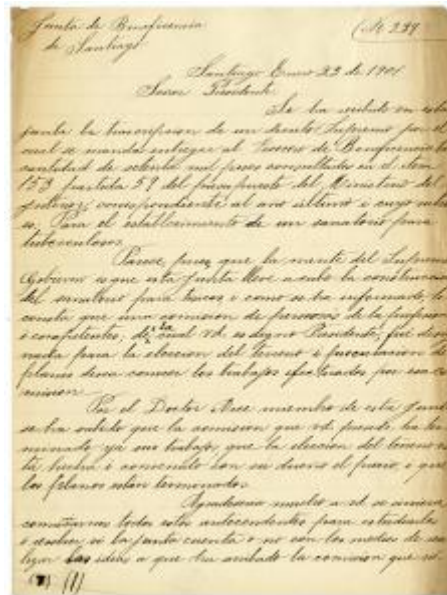 Junta de Beneficencia
de Santiago
(N 239
Santiago Enero 23 de 1901
Señor Presidente
Se ha recibido en esta
junta la transcripcion de un decreto Supremo por el
cual se manda entregar al Tesorero de Beneficencia la
cantidad de setenta mil pesos consultados en el item
153 partida 59 del presupuesto del Ministerio del
Interior, correspondiente al año último i cuyo
es, Para el establecimiento de un sanatorio para
tuberculosos.
Parece, pues, que la mente del Supremo
Gobierno es que esta Junta lleve a cabo la construccion
del sanatorio para i como se ha informado
consta que una comision de personas de la profesion
i competentes, de la cual vd. es digno Presidente, fué desig
nada para la eleccion del terreno i
planos desea conocer los trabajos efectuados por esa co
mision.
Por el Doctor miembro de esta Junta
se ha sabido que la comision que vd. preside, ha ter
minado ya sus trabajos, que la eleccion del terreno es
tá hecha i convenido con su dueño el precio, i que
los planos están terminados.
Agradeceria mucho a vd. se sirviera
comunicarnos todos estos antecedentes para estudiarlos
i resolver si la junta cuenta o no con los medios de rea
lizar las ideas a que ha arribado la comision que vd.
(1)